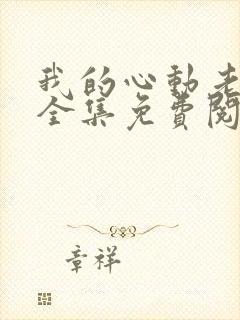 我的心動老
全集免費閱
章祥